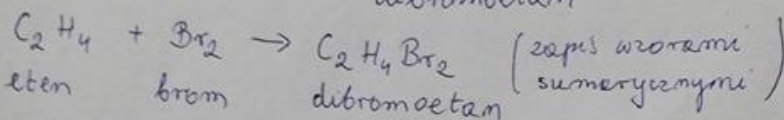 C₂H₄ + Br₂ → C₂H₄Br₂ (zapis wzorami
sumarycznymi)
eten brom dibromoetan